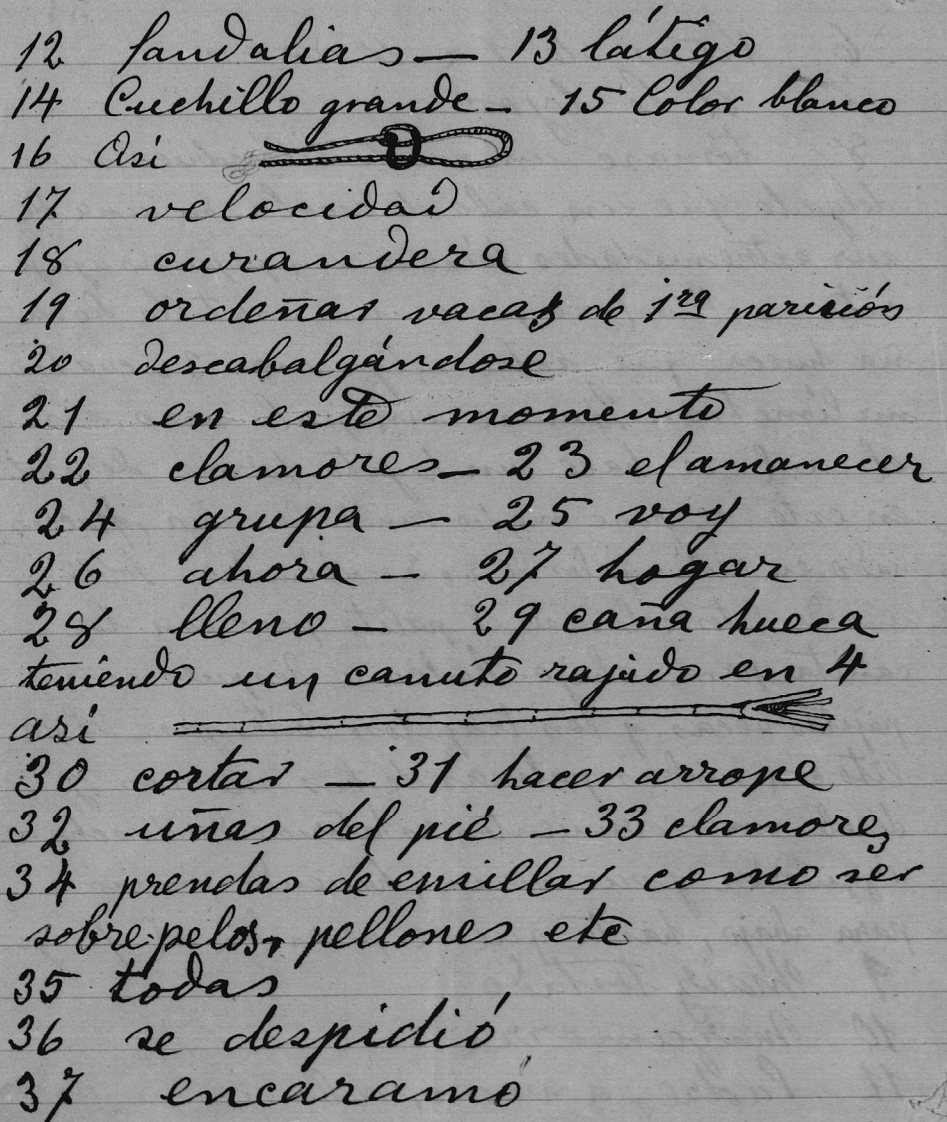 12 sandalias — 13 látigo
14 Cuchillo grande — 15 Color blanco
16 Así
17 velocidad
18 curandera
19 ordeñar vacas de 1ra parición
20 descabalgándose
21 en este momento
22 clamores — 23 el amanecer
24 grupa — 25 voy
26 ahora — 27 hogar
28 lleno — 29 caña hueca
teniendo un canuto rajado en 4
así
30 cortar — 31 hacer arrope
32 uñas del pié — 33 clamores
34 prendas de ensillar como ser
sobrepelos, pellones etc
35 todas
36 se despidió
37 encaramó